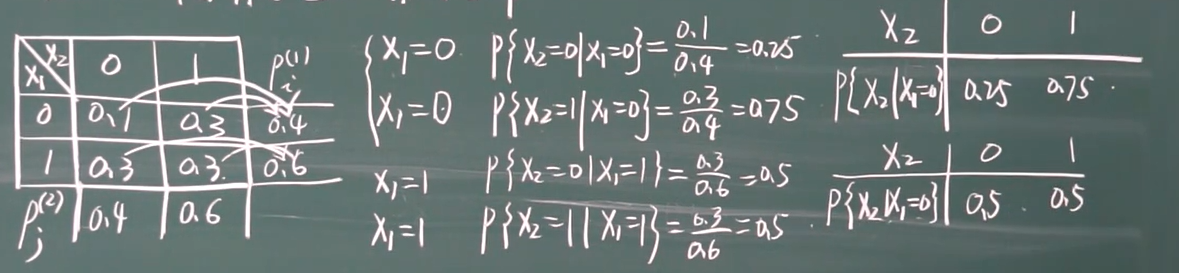 X₂ 0 1 pᵢ⁽¹⁾
X₁
0 0.1 0.3 0.4
1 0.3 0.3 0.6
pⱼ⁽²⁾ 0.4 0.6
{ X₁=0 P{X₂=0|X₁=0}=0.1/0.4=0.25
X₁=0 P{X₂=1|X₁=0}=0.3/0.4=0.75
X₁=1 P{X₂=0|X₁=1}=0.3/0.6=0.5
X₁=1 P{X₂=1|X₁=1}=0.3/0.6=0.5
X₂ 0 1
P{X₂|X₁=0} 0.25 0.75
X₂ 0 1
P{X₂|X₁=0} 0.5 0.5